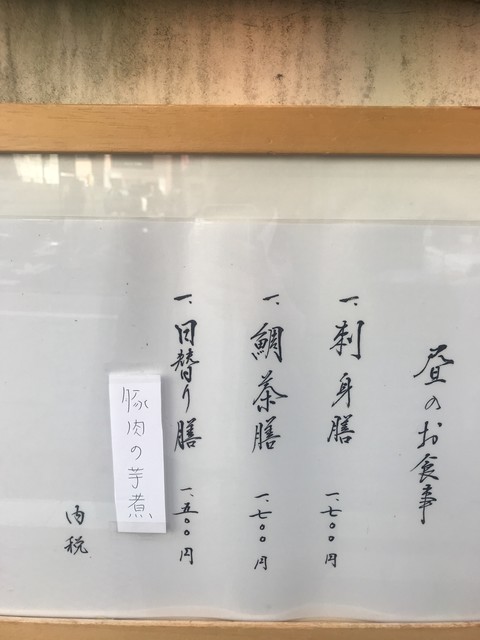 昼のお食事
一、刺身膳 一、七〇〇円
一、鯛茶膳 一、七〇〇円
一、日替り膳 一、五〇〇円
豚肉の芋煮
内税